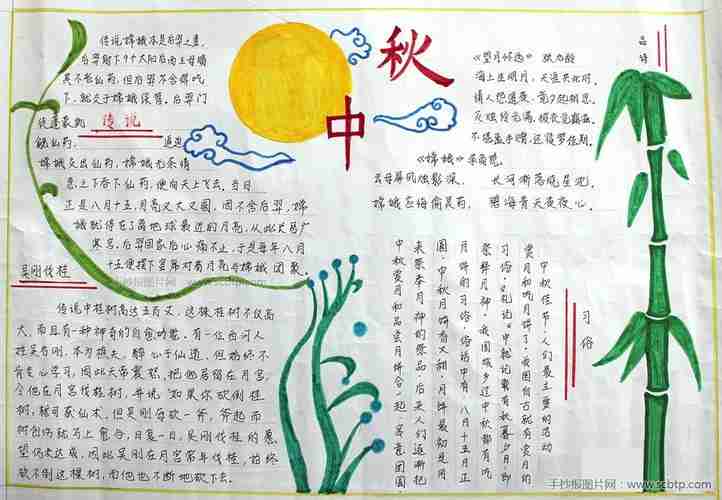 中秋
传说嫦娥本是后羿之妻，
后羿射下9个太阳后西王母赐
其不老仙药，但后羿不舍得吃
下，就交于嫦娥保管。后羿门
徒蓬蒙觊
传说
觎仙药， 逼迫
嫦娥交出仙药，嫦娥无奈情
急之下吞下仙药，便向天上飞去。当日
正是八月十五，月亮又大又圆，因不舍后羿，嫦
娥就停在了离地球最近的月亮，从此长居广
寒宫，后羿回家后心痛不止，于是每年八月
十五便摆下宴席对着月亮与嫦娥团聚。
吴刚伐桂
传说中桂树高达五百丈，这株桂树不仅高
大，而且有一种神奇的自愈功能。有一位西河人
姓吴名刚，本为樵夫，醉心于仙道，但始终不
肯专心学习，因此天帝震怒，把他居留在月宫，
令他在月宫伐桂树，并说“如果你砍倒桂
树，就可获仙术，但吴刚每砍一斧，斧起而
树创伤就马上愈合，日复一日，吴刚伐桂的愿
望仍未达成，因此吴刚在月宫常年伐桂，始终
砍不倒这棵树，而他也不断地砍下去。
品诗
《望月怀远》 张九龄
海上生明月，天涯共此时。
情人怨遥夜，竟夕起相思。
灭烛怜光满，披衣觉露滋。
不堪盈手赠，还寝梦佳期。
《嫦娥》 李商隐
云母屏风烛影深， 长河渐落晓星沉。
嫦娥应悔偷灵药， 碧海青天夜夜心。
习俗
中秋佳节，人们最主要的活动
赏月和吃月饼了。我国自古就有赏月的
习俗，《礼记》中就记载有秋暮夕月，即
祭拜月神。我国城乡过中秋都有吃
月饼的习俗，俗话中有：八月十五月正
圆，中秋月饼香又甜，月饼最初是用
来祭奉月神的祭品，后来人们逐渐把
中秋赏月和品尝月饼合一起，寓意团圆
手抄报图片网
手抄报图片网：www.scbtp.com